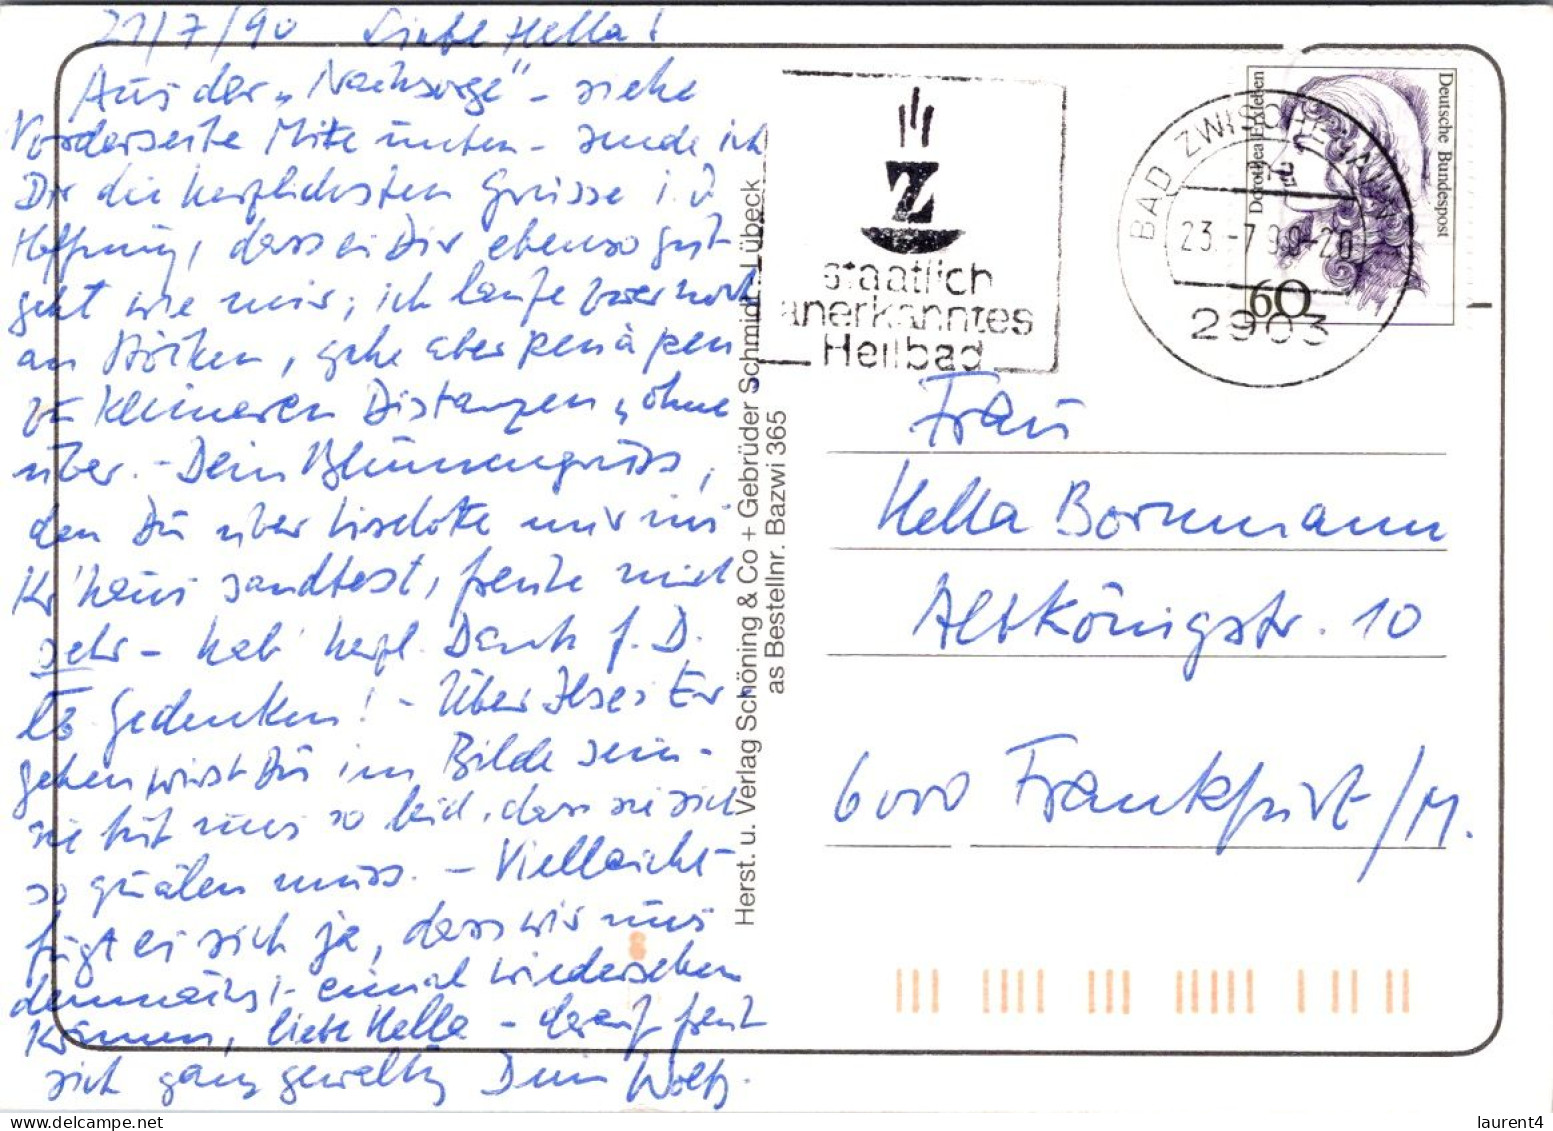 21/7/90 Liebe Hella!
Aus der „Nachsorge" - siehe
Vorderseite Mitte unten - sende ich
Dir die herzlichsten Grüsse i. d.
Hoffnung, dass es Dir ebenso gut
geht wie mir; ich laufe zwar noch
an Stöcken, gehe aber peu à peu
zu kleineren Distanzen „ohne"
über. - Dein Blumengruss,
den Du über Liselotte mir ins
Kr'haus sandtest, freute mich
sehr - hab' herzl. Dank f. D.
lb. Gedenken! - Über Ilses Er-
gehen wirst Du im Bilde sein -
sie tut uns so leid, dass sie sich
so quälen muss. - Vielleicht
fügt es sich ja, dass wir uns
demnächst einmal wiedersehen
können, liebe Hella - darauf freut
sich ganz gewaltig Dein
Herst. u. Verlag Schöning & Co + Gebrüder Schmidt, Lübeck
as Bestellnr. Bazwi 365
Z
staatlich
anerkanntes
Heilbad
BAD ZWISCHENAHN
23.-7.90-20
2903
Deutsche Bundespost
Dorothea Erxleben
60
Frau
Hella Bornmann
Altkönigstr. 10
6000 Frankfurt/M.
laurent4